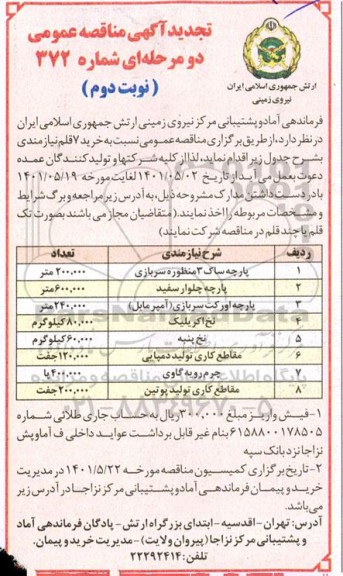 تجدید آگهی مناقصه عمومی
دو مرحله‌ای شماره ۳۷۲
(نوبت دوم)
ارتش جمهوری اسلامی ایران
نیروی زمینی
فرماندهی آماد و پشتیبانی مرکز نیروی زمینی ارتش جمهوری اسلامی ایران
در نظر دارد، از طریق برگزاری مناقصه عمومی نسبت به خرید ۷ قلم نیازمندی
بشرح جدول زیر اقدام نماید، لذا از کلیه شرکتها و تولید کنندگان عمده
دعوت بعمل می آید از تاریخ ۱۴۰۱/۰۵/۰۲ لغایت مورخه ۱۴۰۱/۰۵/۱۹
با در دست داشتن مدارک مشروحه ذیل، به آدرس زیر مراجعه و برگ شرایط
و مشخصات مربوطه را اخذ نمایند. (متقاضیان مجاز می باشند بصورت تک
قلم یا چند قلم در مناقصه شرکت نمایند)
ردیف شرح نیازمندی تعداد
۱ پارچه ساک ۳ منظوره سربازی ۲۰۰،۰۰۰ متر
۲ پارچه چلوار سفید ۶۰۰،۰۰۰ متر
۳ پارچه اورکت سربازی (آمپر مابل) ۲۴۰،۰۰۰ متر
۴ نخ اکریلیک ۸۰،۰۰۰ کیلوگرم
۵ نخ پنبه ۶۰،۰۰۰ کیلوگرم
۶ مقاطع کاری تولید دمپایی ۱۲۰،۰۰۰ جفت
۷ چرم رویه گاوی ۴۰۰،۰۰۰ پا
۸ مقاطع کاری تولید پوتین ۲۰۰،۰۰۰ جفت
۱- فیش واریز مبلغ ۳۰۰،۰۰۰ ریال به حساب جاری طلائی شماره
۶۱۵۸۸۰۰۱۷۸۵۰۵ بنام غیر قابل برداشت عواید داخلی ف آماوپش
نزاجا نزد بانک سپه
۲- تاریخ برگزاری کمیسیون مناقصه مورخه ۱۴۰۱/۵/۲۲ در مدیریت
خرید و پیمان فرماندهی آماد و پشتیبانی مرکز نزاجا در آدرس زیر
می باشد.
آدرس: تهران - اقدسیه - ابتدای بزرگراه ارتش - پادگان فرماندهی آماد
و پشتیبانی مرکز نزاجا (پیروان ولایت) - مدیریت خرید و پیمان.
تلفن: ۲۲۲۹۲۴۱۴